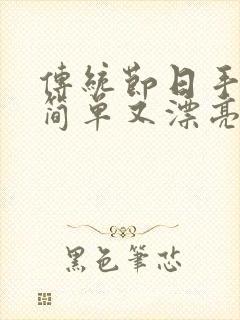 傳統節日手
簡單又漂亮
黑色筆芯